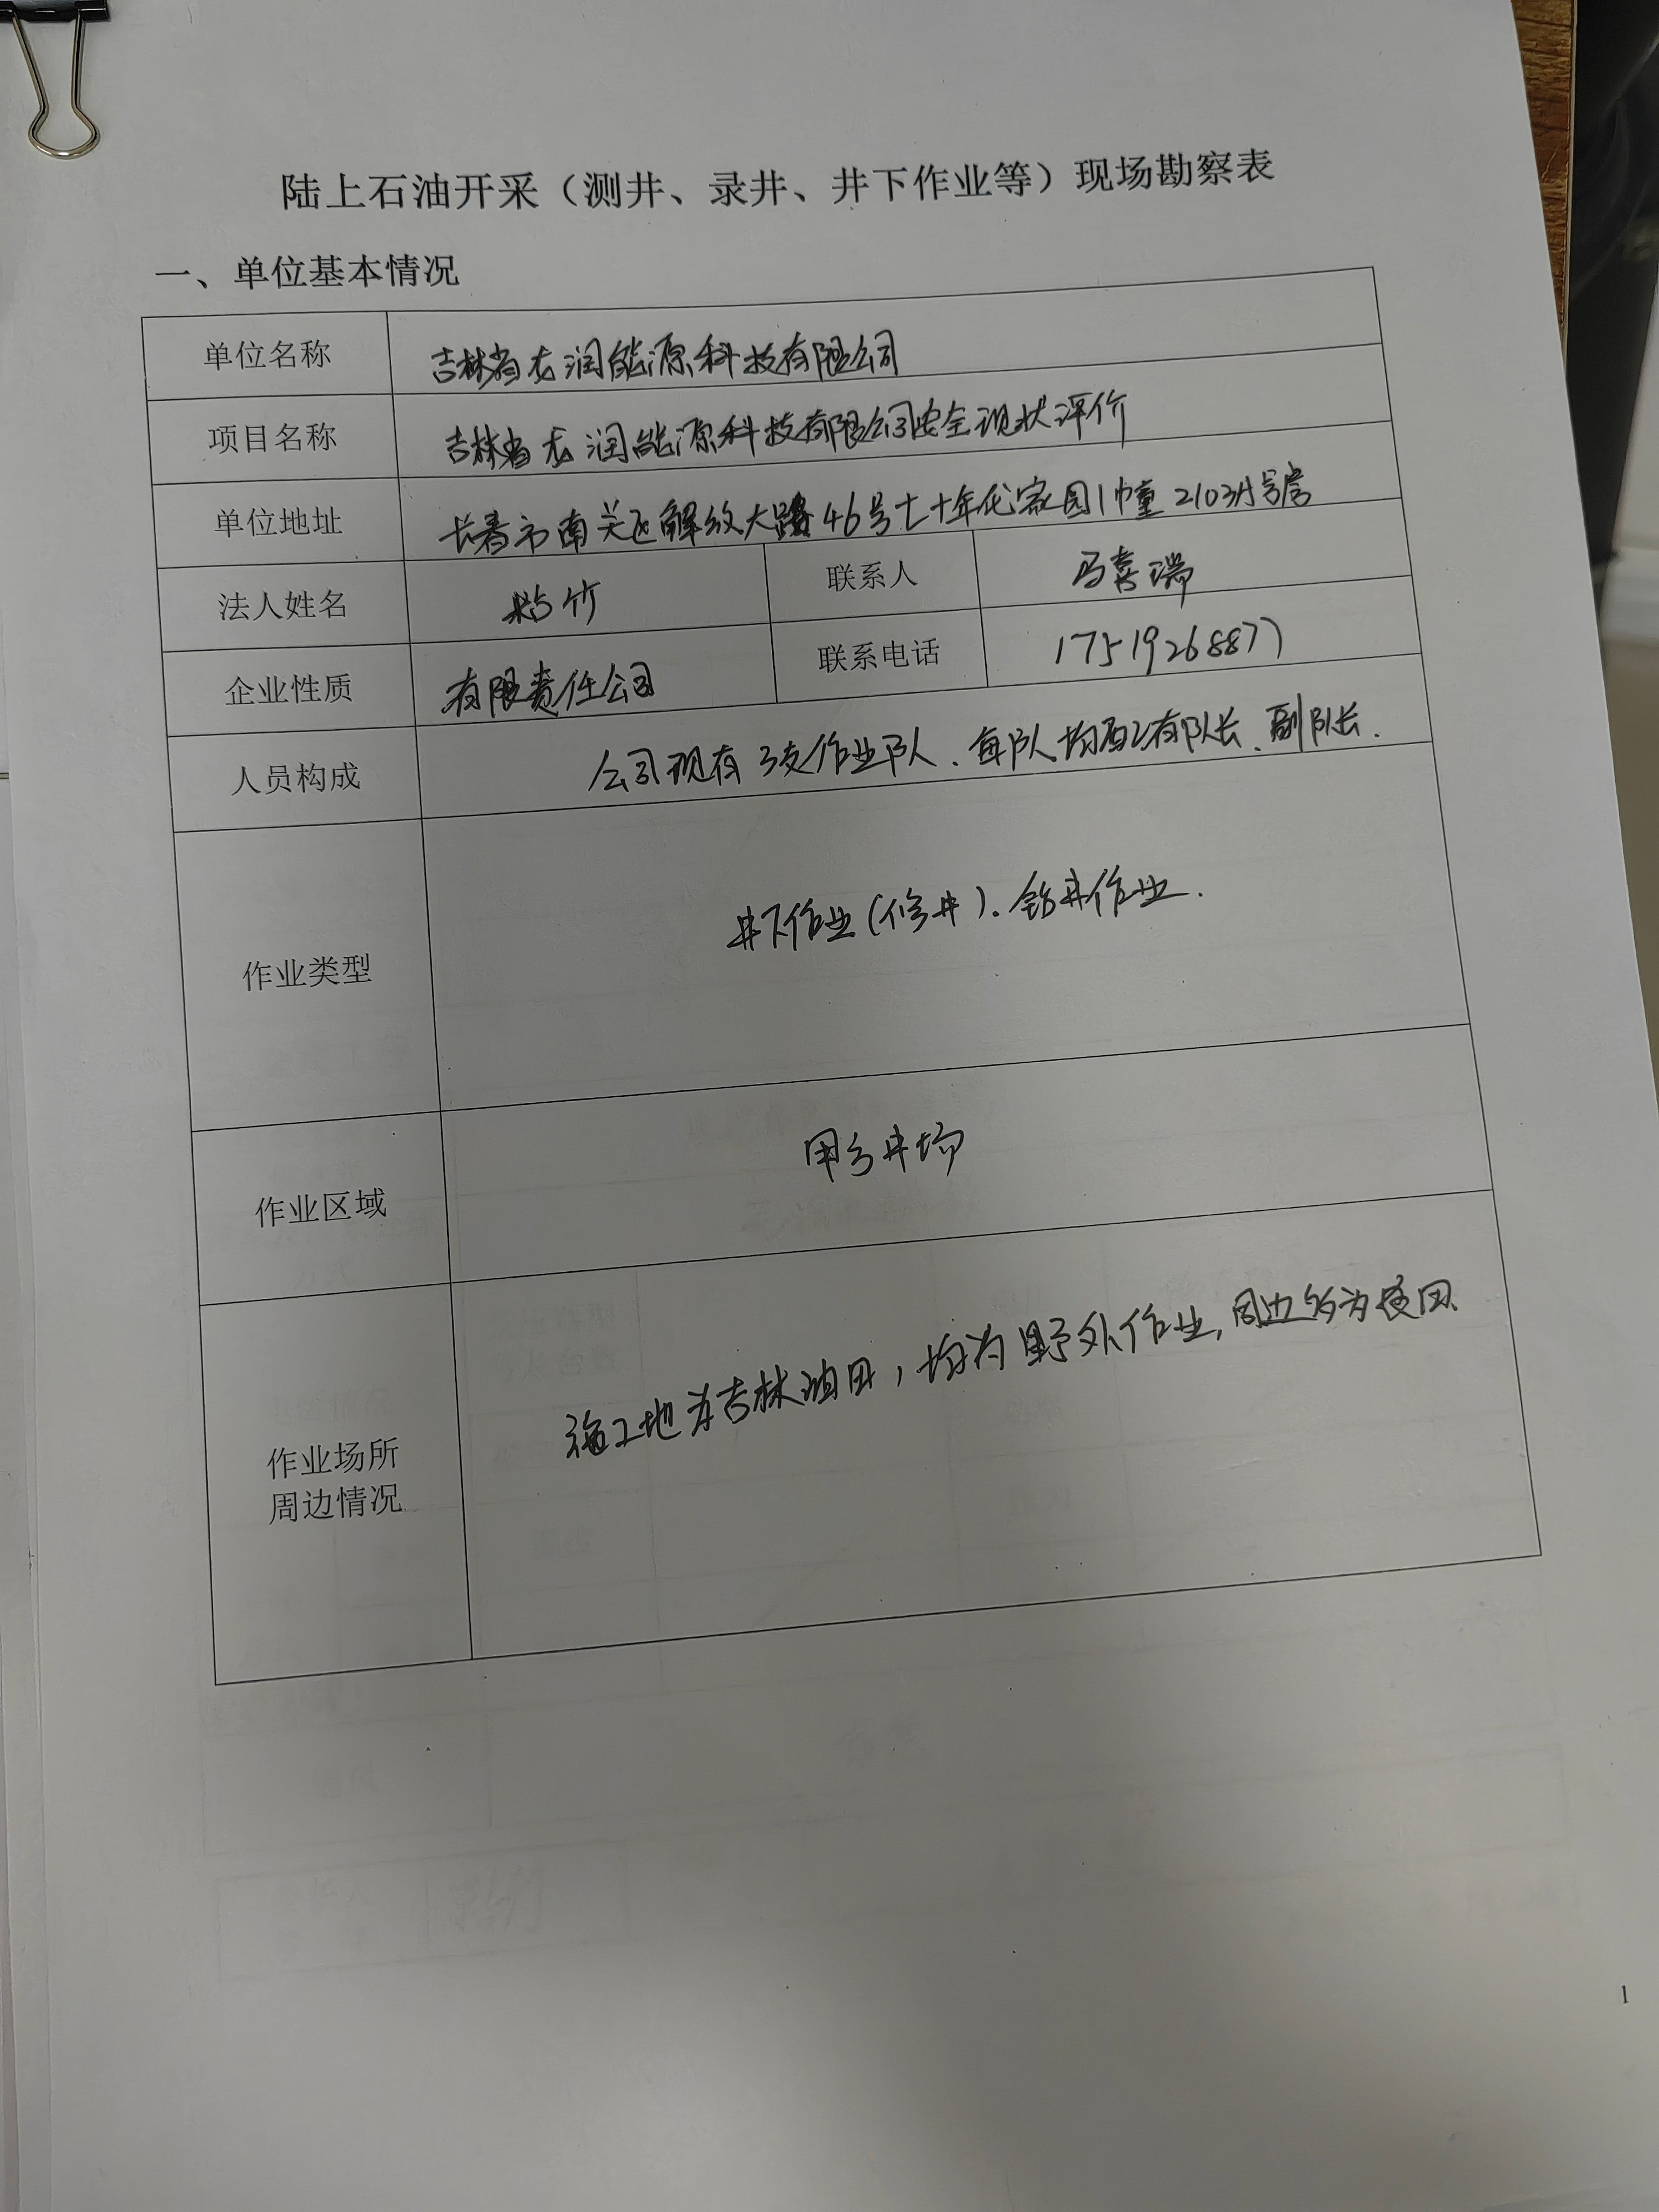 陆上石油开采（测井、录井、井下作业等）现场勘察表
一、单位基本情况
单位名称 吉林省龙润能源科技有限公司
项目名称 吉林省龙润能源科技有限公司安全现状评价
单位地址 长春市南关区解放大路46号七十年代家园1幢2103
法人姓名 竹 联系人 冯喜瑞
企业性质 有限责任公司 联系电话 17519268877
人员构成 公司现有3支作业队、每队均配有队长、副队长.
作业类型 井下作业(修井)、钻井作业.
作业区域 甲方井场
作业场所
周边情况 施工地为吉林油田，均为野外作业,周边多为
1